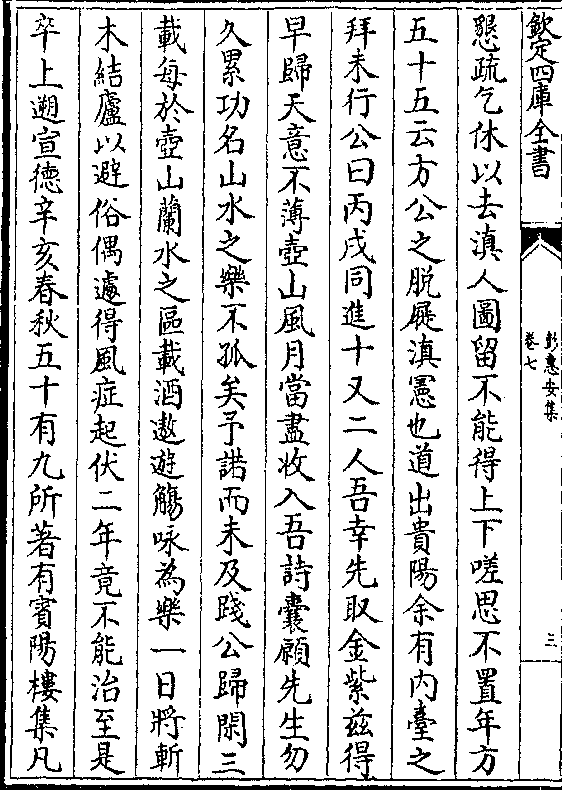 欽定四庫全書
彭惠安集
卷七
三
懇疏乞休以去滇人圖留不能得上下嗟思不置年方
五十五云方公之脱屣滇憲也道出貴陽余有内臺之
拜未行公曰丙戌同進十又二人吾幸先取金紫兹得
早歸天意不薄壺山風月當盡收入吾詩囊願先生勿
久累功名山水之樂不孤矣予諾而未及踐公歸閑三
載每於壺山蘭水之區載酒遨遊觴咏為樂一日將斬
木結廬以避俗偶遽得風症起伏二年竟不能治至是
卒上遡宣德辛亥春秋五十有九所著有賓陽樓集凡